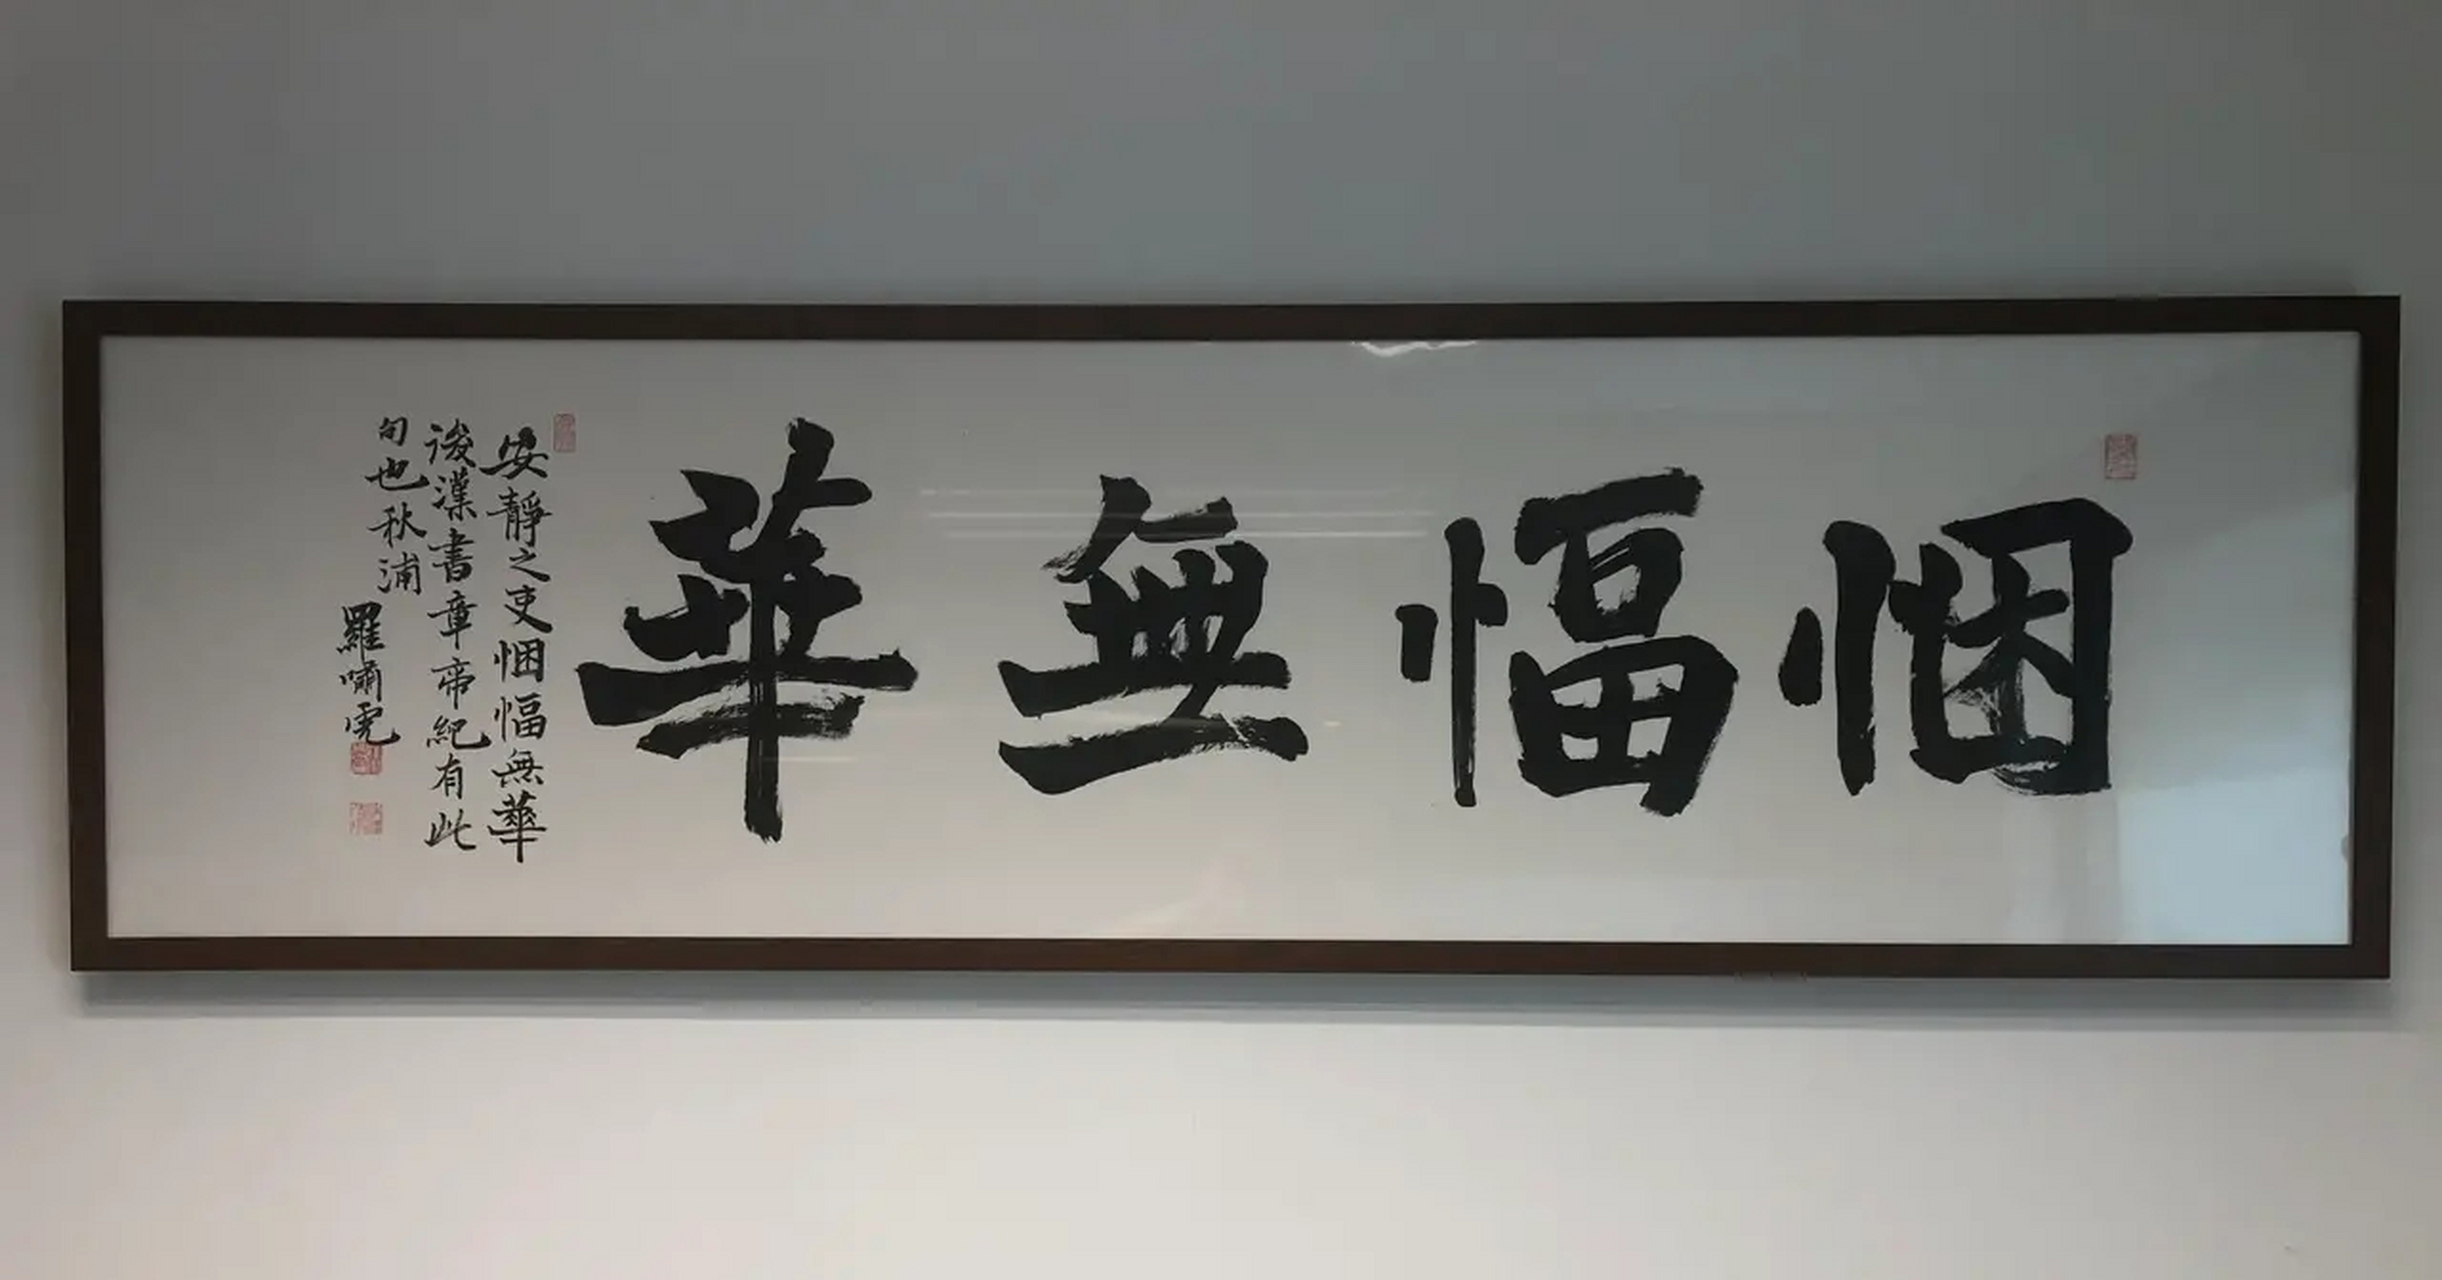 悃愊無華
安靜之吏悃愊無華
後漢書章帝紀有此
句也秋浦
羅嘯虎